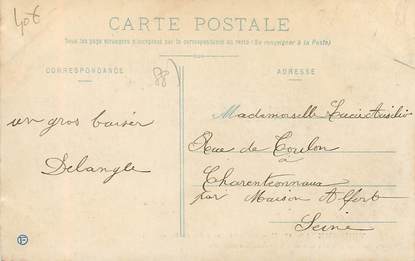 40t
CARTE POSTALE
Tous les pays étrangers n'acceptent pas la correspondance au recto (Se renseigner à la Poste)
CORRESPONDANCE
88
ADRESSE
Mademoiselle Lucie
un gros baiser
Delangle
Rue de Toulon
à
Charentonnaux
par Maison Alfort
Seine